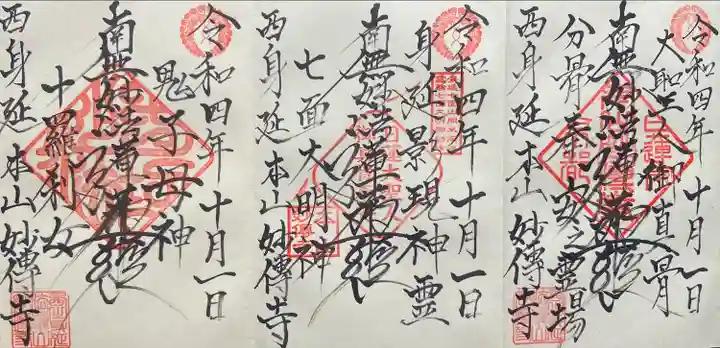 令和四年十月一日
大聖人御真骨
南無妙法蓮華経
分骨奉安之霊場
西身延 本山 妙傳寺
令和四年十月一日
身延景現神霊
南無妙法蓮華経
七面大明神
西身延 本山 妙傳寺
令和四年十月一日
鬼子母神
南無妙法蓮華経
十羅刹女
西身延 本山 妙傳寺